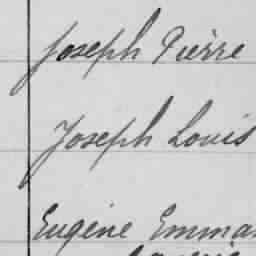 Joseph Pierre
Joseph Louis
Eugène